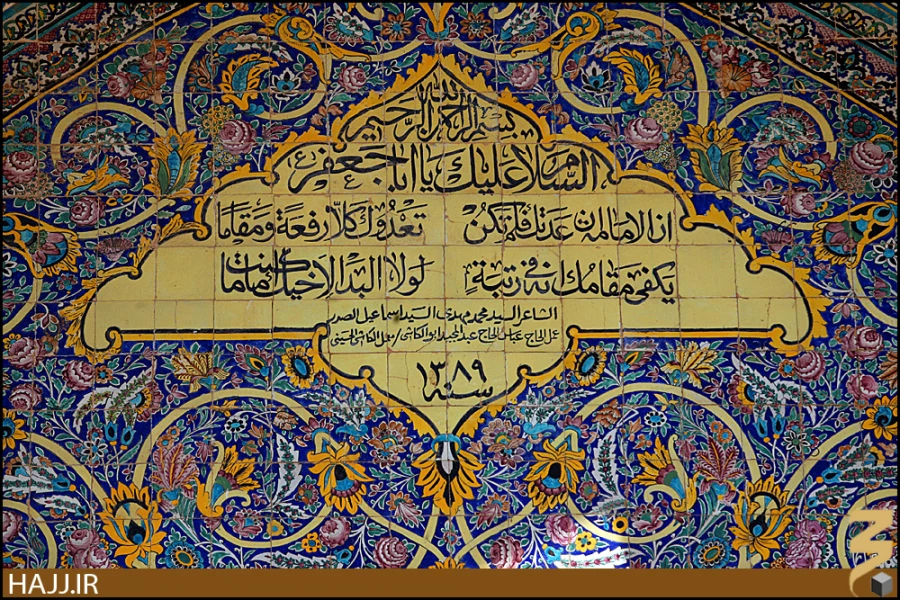 بسم الله الرحمن الرحيم
السلام عليك يا ابا جعفر ع
ان الامامة ان عدتك فلم تكن تعدوك كلا رفعة ومقاما
يكفي مقامك انه في رتبة لولا البدا لاخيك كنت اماما
الشاعر السيد محمد مهدي السيد اسماعيل الصدر
عمل الحاج عباس الحاج عبدالمجيد ابو الكاشي /
سنة ١٣٨٩
HAJJ.IR